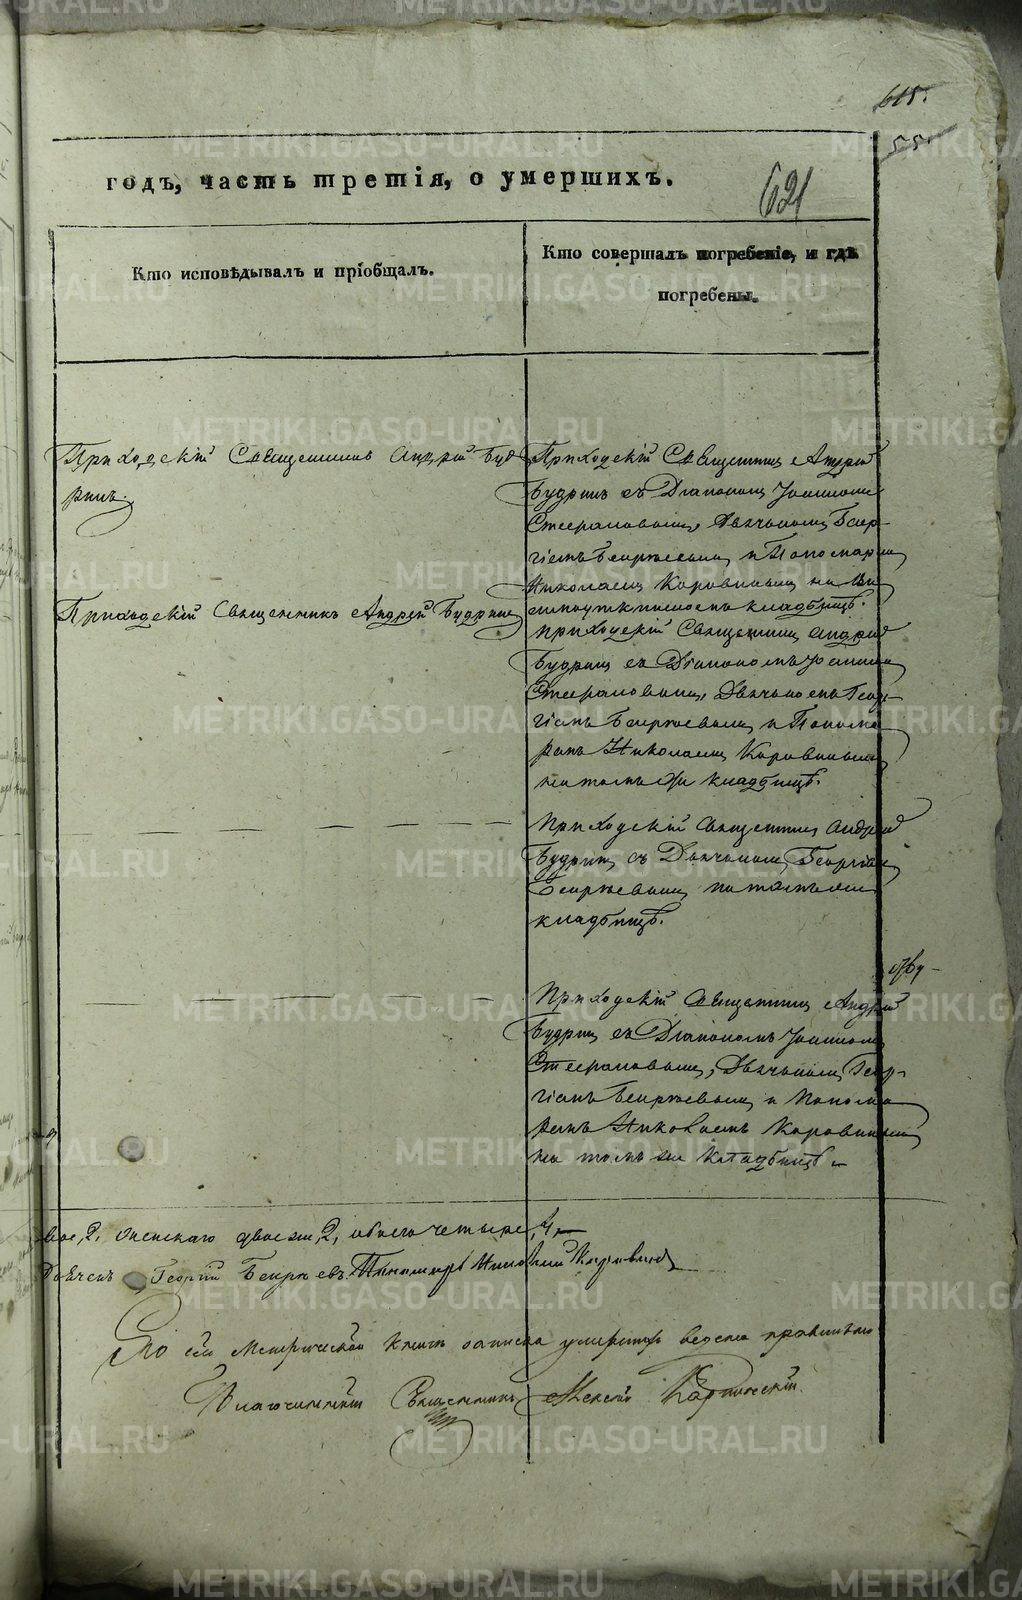 615.
55
годъ, часть третія, о умершихъ.
621
Кто исповѣдывалъ и пріобщалъ.
Кто совершалъ погребеніе, и гдѣ
погребены.
Приходскій Священникъ Андрей Буд
ринъ.
Приходскій Священникъ Андрей
Будринъ съ Діакономъ Іоанномъ
Стефановымъ, Дьячкомъ Геор-
гіемъ и Пономаремъ
Николаемъ Коровинымъ на
кладбищѣ.
Приходскій Священникъ Андрей Будринъ
Приходскій Священникъ Андрей
Будринъ съ Діакономъ Іоанномъ
Стефановымъ, Дьячкомъ Геор-
гіемъ и Понома
ремъ Николаемъ Коровинымъ
на томъ же кладбищѣ.
Приходскій Священникъ Андрей
Будринъ съ Дьячкомъ Георгіемъ
на томъ же
кладбищѣ.
Приходскій Священникъ Андрей
Будринъ съ Діакономъ Іоанномъ
Стефановымъ, Дьячкомъ Геор-
гіемъ и Понома
ремъ Николаемъ Коровинымъ
на томъ же кладбищѣ
2, женскаго двое 2, обоего четыре, 4
Георгій Пономарь Николай Коровинъ
По сей Метрической книгѣ записка умершихъ ведена правильно
Благочинный Священникъ Алексій Карпинскій
METRIKI.GASO-URAL.RU